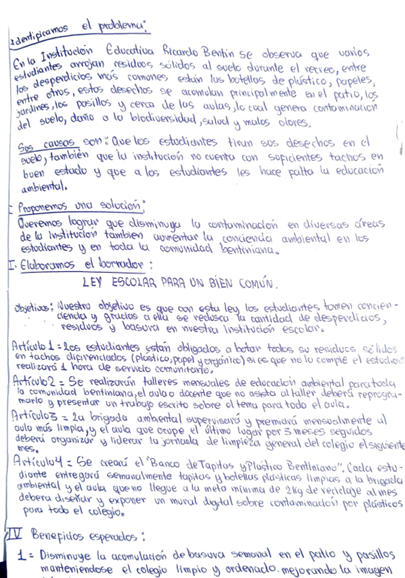 Identificamos el problema:
En la Institución Educativa Ricardo Bentín se observa que varios
estudiantes arrojan residuos sólidos al suelo durante el recreo, entre
los desperdicios más comunes están las botellas de plástico, papeles,
entre otros, estos desechos se acumulan principalmente en el patio, los
jardines, los pasillos y cerca de las aulas, lo cual genera contaminación
del suelo, daño a la biodiversidad, salud y malos olores.
Sus causas son: Que los estudiantes tiran sus desechos en el
suelo, también que la institución no cuenta con suficientes tachos en
buen estado y que a los estudiantes les hace falta la educación
ambiental.
Proponemos una solución:
Queremos lograr que disminuya la contaminación en diversas áreas
de la institución tambien aumentar la conciencia ambiental en los
estudiantes y en toda la comunidad bentiniana.
Elaboramos el borrador:
LEY ESCOLAR PARA UN BIEN COMÚN.
Objetivos: Nuestro objetivo es que con esta ley los estudiantes tomen concien-
ciencia y gracias a ella se reduzca la cantidad de desperdicios,
residuos y basura en nuestra Institución escolar.
Artículo 1 = Los estudiantes están obligados a botar todos su residuos sólidos
en tachos diferenciados (plástico, papel y orgánico) es que no lo cumple el estudiante
realizará 1 hora de servicio comunitario.
Artículo 2 = Se realizarán talleres mensuales de educación ambiental para toda
la comunidad bentiniana, el aula o docente que no asista al taller deberá reprogra-
marlo y presentar un trabajo escrito sobre el tema para todo el aula.
Artículo 3 = La brigada ambiental supervisará y premiará mensualmente al
aula más limpia, y el aula que ocupe el último lugar por 3 meses seguidos
deberá organizar y liderar la jornada de limpieza general del colegio el siguiente
mes.
Artículo 4 = Se creará el "Banco de Tapitas y Plástico Bentiniano". Cada estu-
diante entregará semanalmente tapitas y botellas plásticas limpias a la brigada
ambiental y el aula que no llegue a la meta mínima de 2kg de reciclaje al mes
deberá diseñar y exponer un mural digital sobre contaminación por plásticos
para todo el colegio.
IV Beneficios esperados:
1 = Disminuye la acumulación de basura semanal en el patio y pasillos
manteniendose el colegio limpio y ordenado. mejorando la imagen